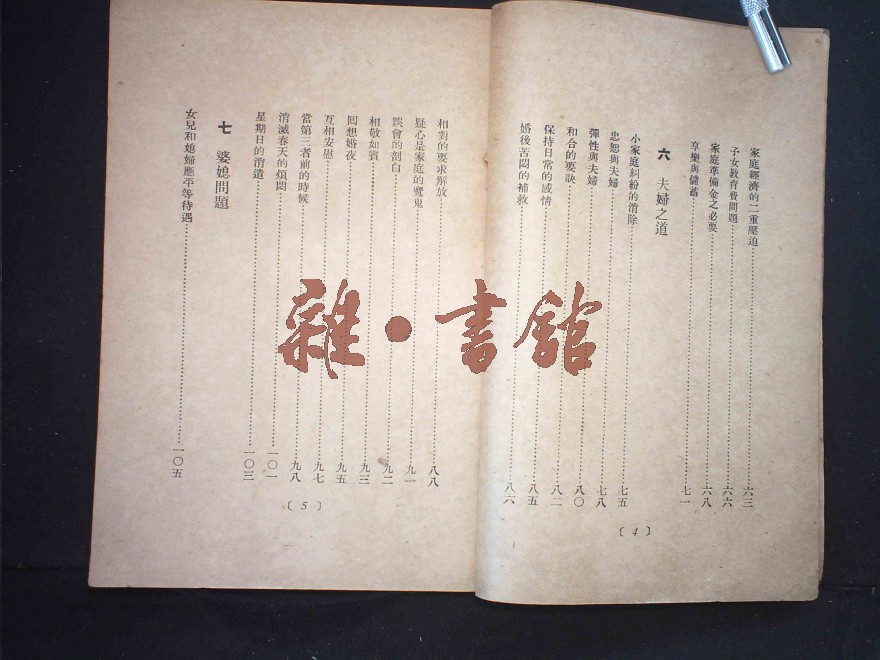 家庭經濟的二重壓迫……六三
子女敎育費問題……六六
家庭準備金之必要……六八
享樂與儲蓄……七一
六 夫婦之道
小家庭糾紛的消除……七五
忠恕與夫婦……七八
彈性與夫婦……八〇
和合的要訣……八二
保持日常的感情……八五
婚後苦悶的補救……八六
〔4〕
相對的要求解放……八八
疑心是家庭的魔鬼……九一
誤會的剖白……九二
相敬如賓……九三
回想婚夜……九五
互相安慰……九七
當第三者前的時候……九八
消滅春天的煩悶……一〇一
星期日的消遣……一〇三
七 婆媳問題
女兒和媳婦應平等待遇……一〇五
〔5〕
雜·書館